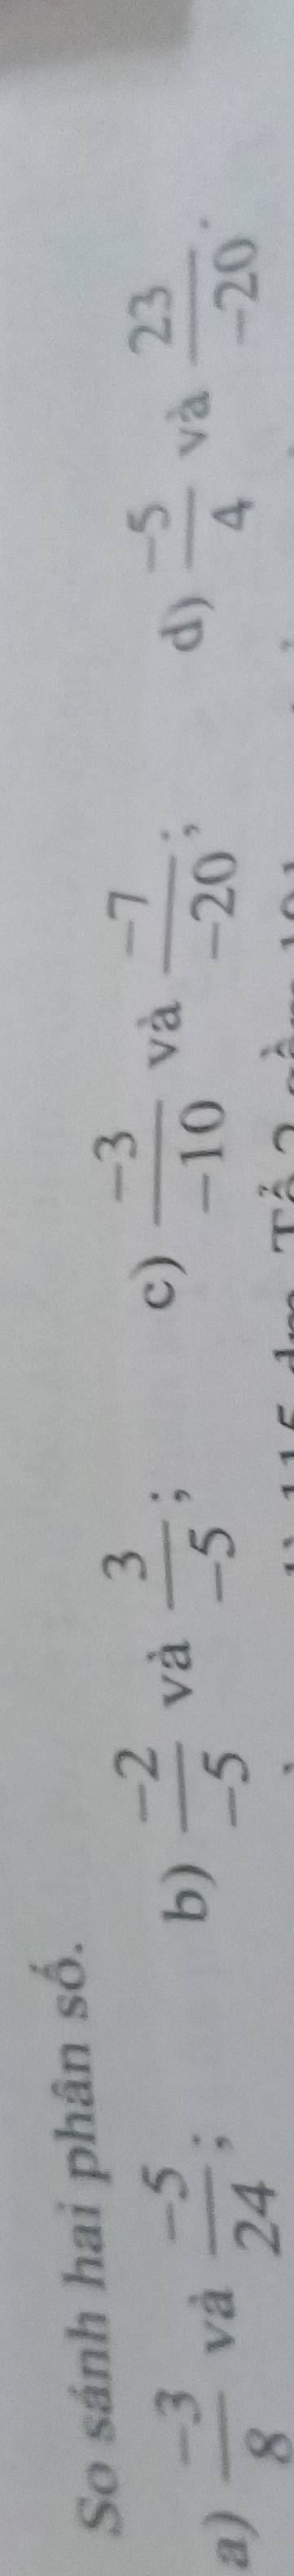 So sánh hai phân số.
a) -3/8 và -5/24; b) -2/-5 và 3/-5; c) -3/-10 và -7/-20; d) -5/4 và 23/-20.